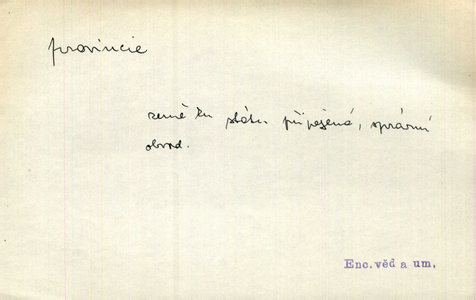 provincie
země ku státu připojená, správní
obvod.
Enc. věd a um.